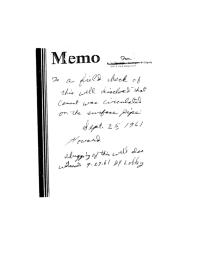 Memo
To a field check of
this well disclosed that
Cement was circulated
on the surface pipe
Sept. 25 1961
Howard
plugging of this well was
witnessed 9-27-61